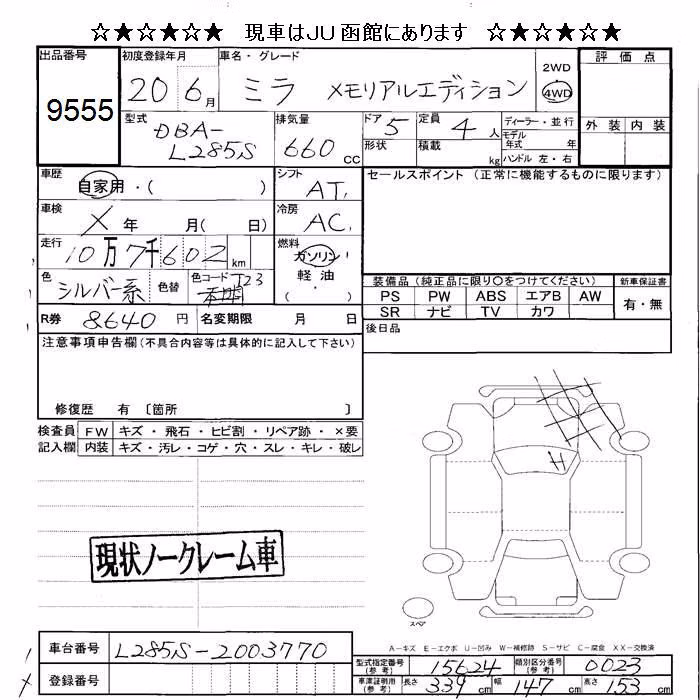 ☆★☆★☆★ 現車はJU函館にあります ☆★☆★☆★
出品番号 初度登録年月 車名・グレード 2WD 評価点
9555 20 6月 ミラ メモリアルエディション 4WD
型式 排気量 ドア 5 定員 4人 ディーラー・並行 外装 内装
DBA-L285S 660cc 形状 積載 kg モデル年式 年 ハンドル 左・右
車歴 自家用・( ) シフト AT. セールスポイント(正常に機能するものに限ります)
車検 X年 月( 日) 冷房 AC.
走行 10万7千602km 燃料 ガソリン 軽油 ( )
色 シルバー系 色替 色コード 装備品(純正品に限り○をつけてください) 新車保証書
PS PW ABS エアB AW 有・無
SR ナビ TV カワ
R券 8640円 名変期限 月 日 後日品
注意事項申告欄(不具合内容等は具体的に記入して下さい)
修復歴 有 〔箇所 〕
検査員 FW キズ・飛石・ヒビ割・リペア跡・×要
記入欄 内装 キズ・汚レ・コゲ・穴・スレ・キレ・破レ
現状ノークレーム車
スペア
A-キズ E-エクボ U-凹み W-補修跡 S-サビ C-腐食 XX-交換済
車台番号 L285S-2003770 型式指定番号(参考) 15624 類別区分番号(参考) 0023
登録番号 車庫証明用(参考) 長さ 339cm 幅 147cm 高さ 153cm